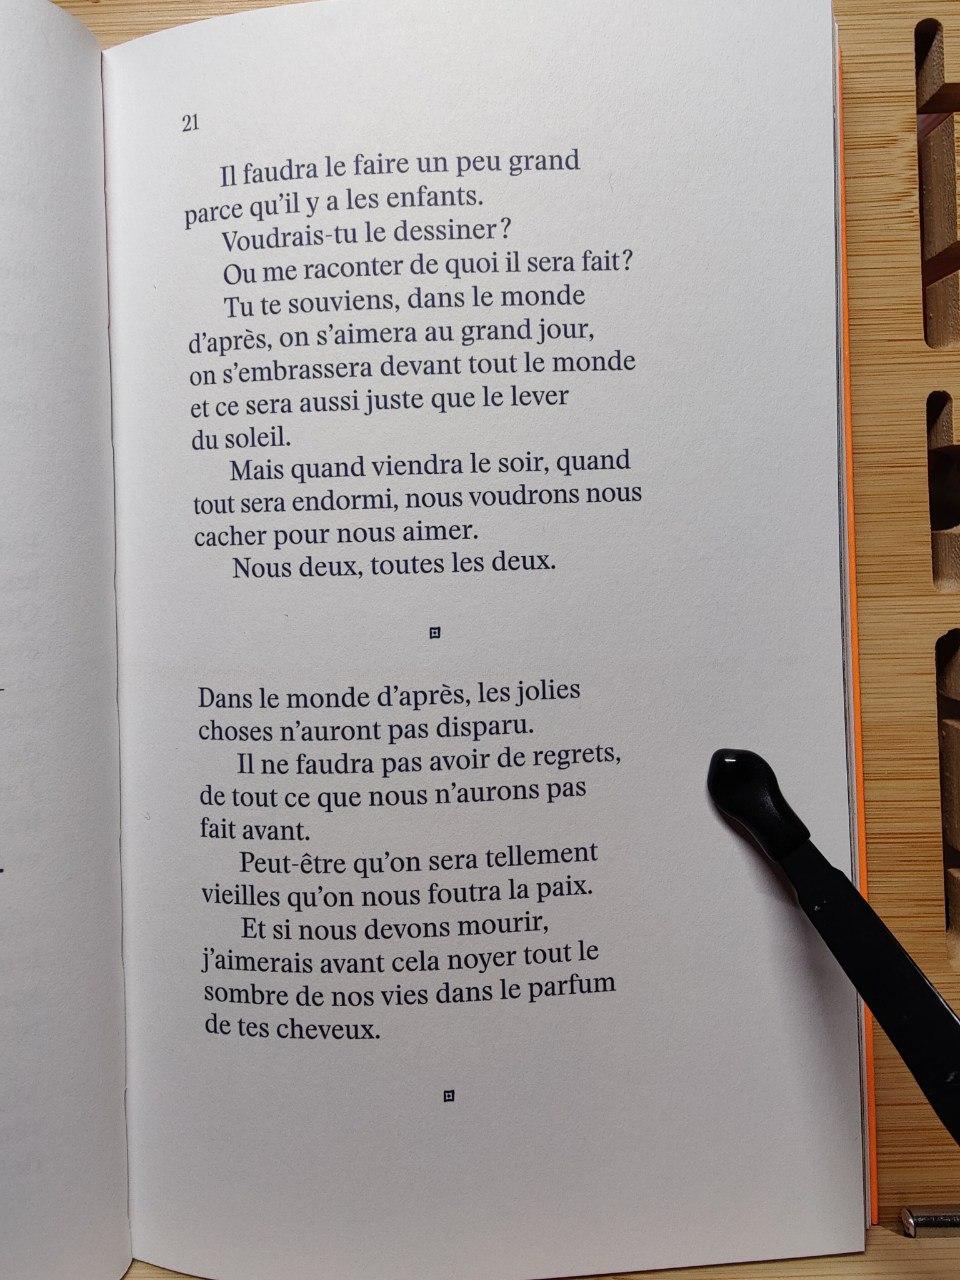 21
Il faudra le faire un peu grand
parce qu’il y a les enfants.
Voudrais-tu le dessiner ?
Ou me raconter de quoi il sera fait ?
Tu te souviens, dans le monde
d’après, on s’aimera au grand jour,
on s’embrassera devant tout le monde
et ce sera aussi juste que le lever
du soleil.
Mais quand viendra le soir, quand
tout sera endormi, nous voudrons nous
cacher pour nous aimer.
Nous deux, toutes les deux.
Dans le monde d’après, les jolies
choses n’auront pas disparu.
Il ne faudra pas avoir de regrets,
de tout ce que nous n’aurons pas
fait avant.
Peut-être qu’on sera tellement
vieilles qu’on nous foutra la paix.
Et si nous devons mourir,
j’aimerais avant cela noyer tout le
sombre de nos vies dans le parfum
de tes cheveux.